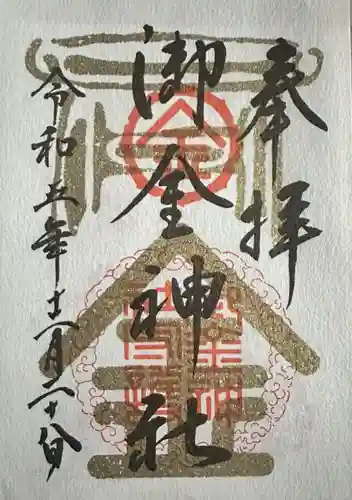 奉拝
御金神社
令和五年十一月二十八日
金